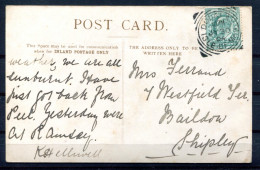 POST CARD.
FOR INLAND POSTAGE ONLY
THE ADDRESS ONLY TO BE
WRITTEN HERE
weather, we are all
sunburnt. I have
just got back from
Peel. Yesterday were
at Ramsey.
Mrs Ferrand
7 Westfield Ter,
Baildon
Shipley